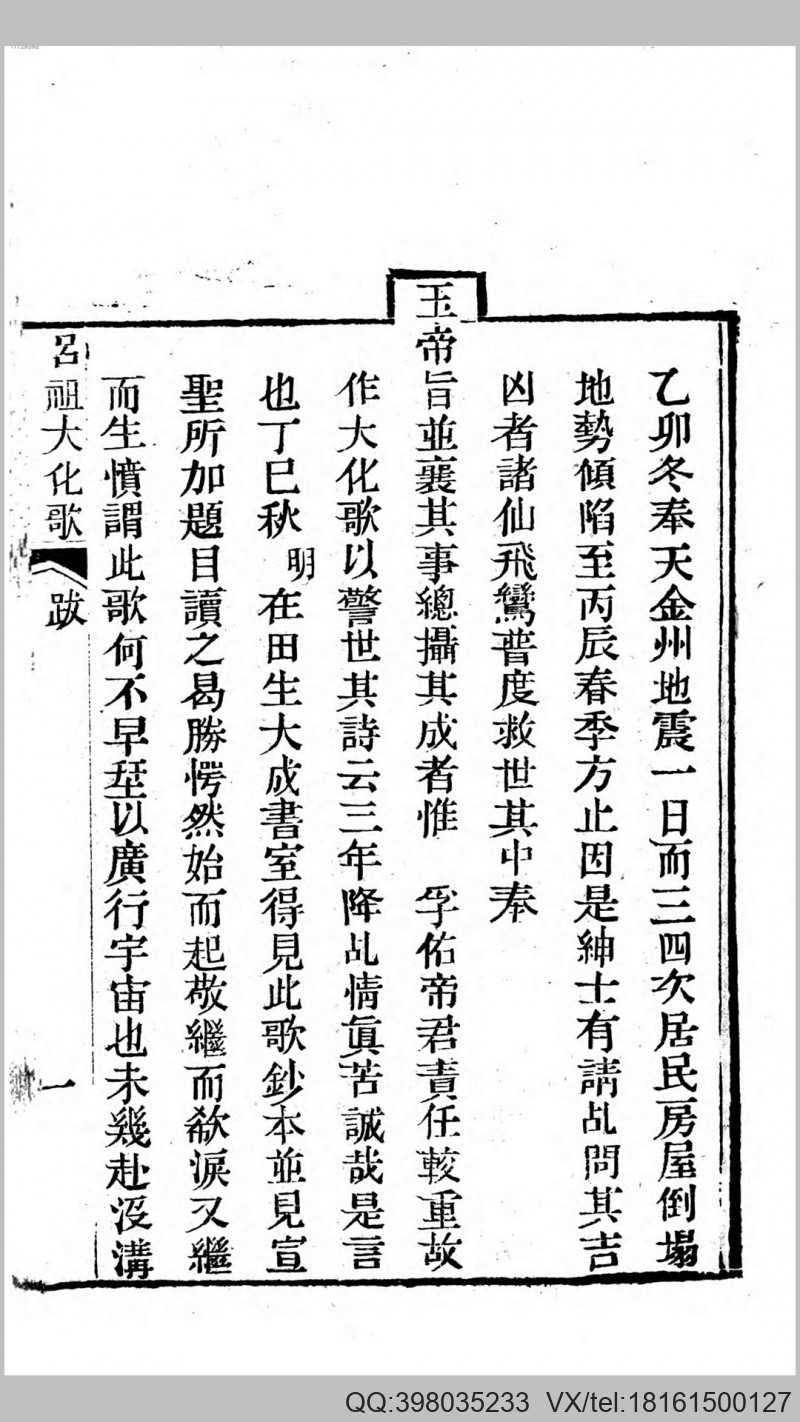 乙卯冬奉天金州地震一日而三四次居民房屋倒塌
地勢傾陷至丙辰春季方止因是紳士有請乩問其吉
凶者諸仙飛鸞普度救世其中奉
玉帝旨並襄其事總攝其成者惟 孚佑帝君責任較重故
作大化歌以警世其詩云三年降乩情眞苦誠哉是言
也丁巳秋 明 在田生大成書室得見此歌鈔本並見宣
聖所加題目讀之曷勝愕然始而起敬繼而欷淚又繼
而生憤謂此歌何不早埀以廣行宇宙也未幾赴没溝
呂祖大化歌 跋 一
QQ:398035233 VX/tel:18161500127